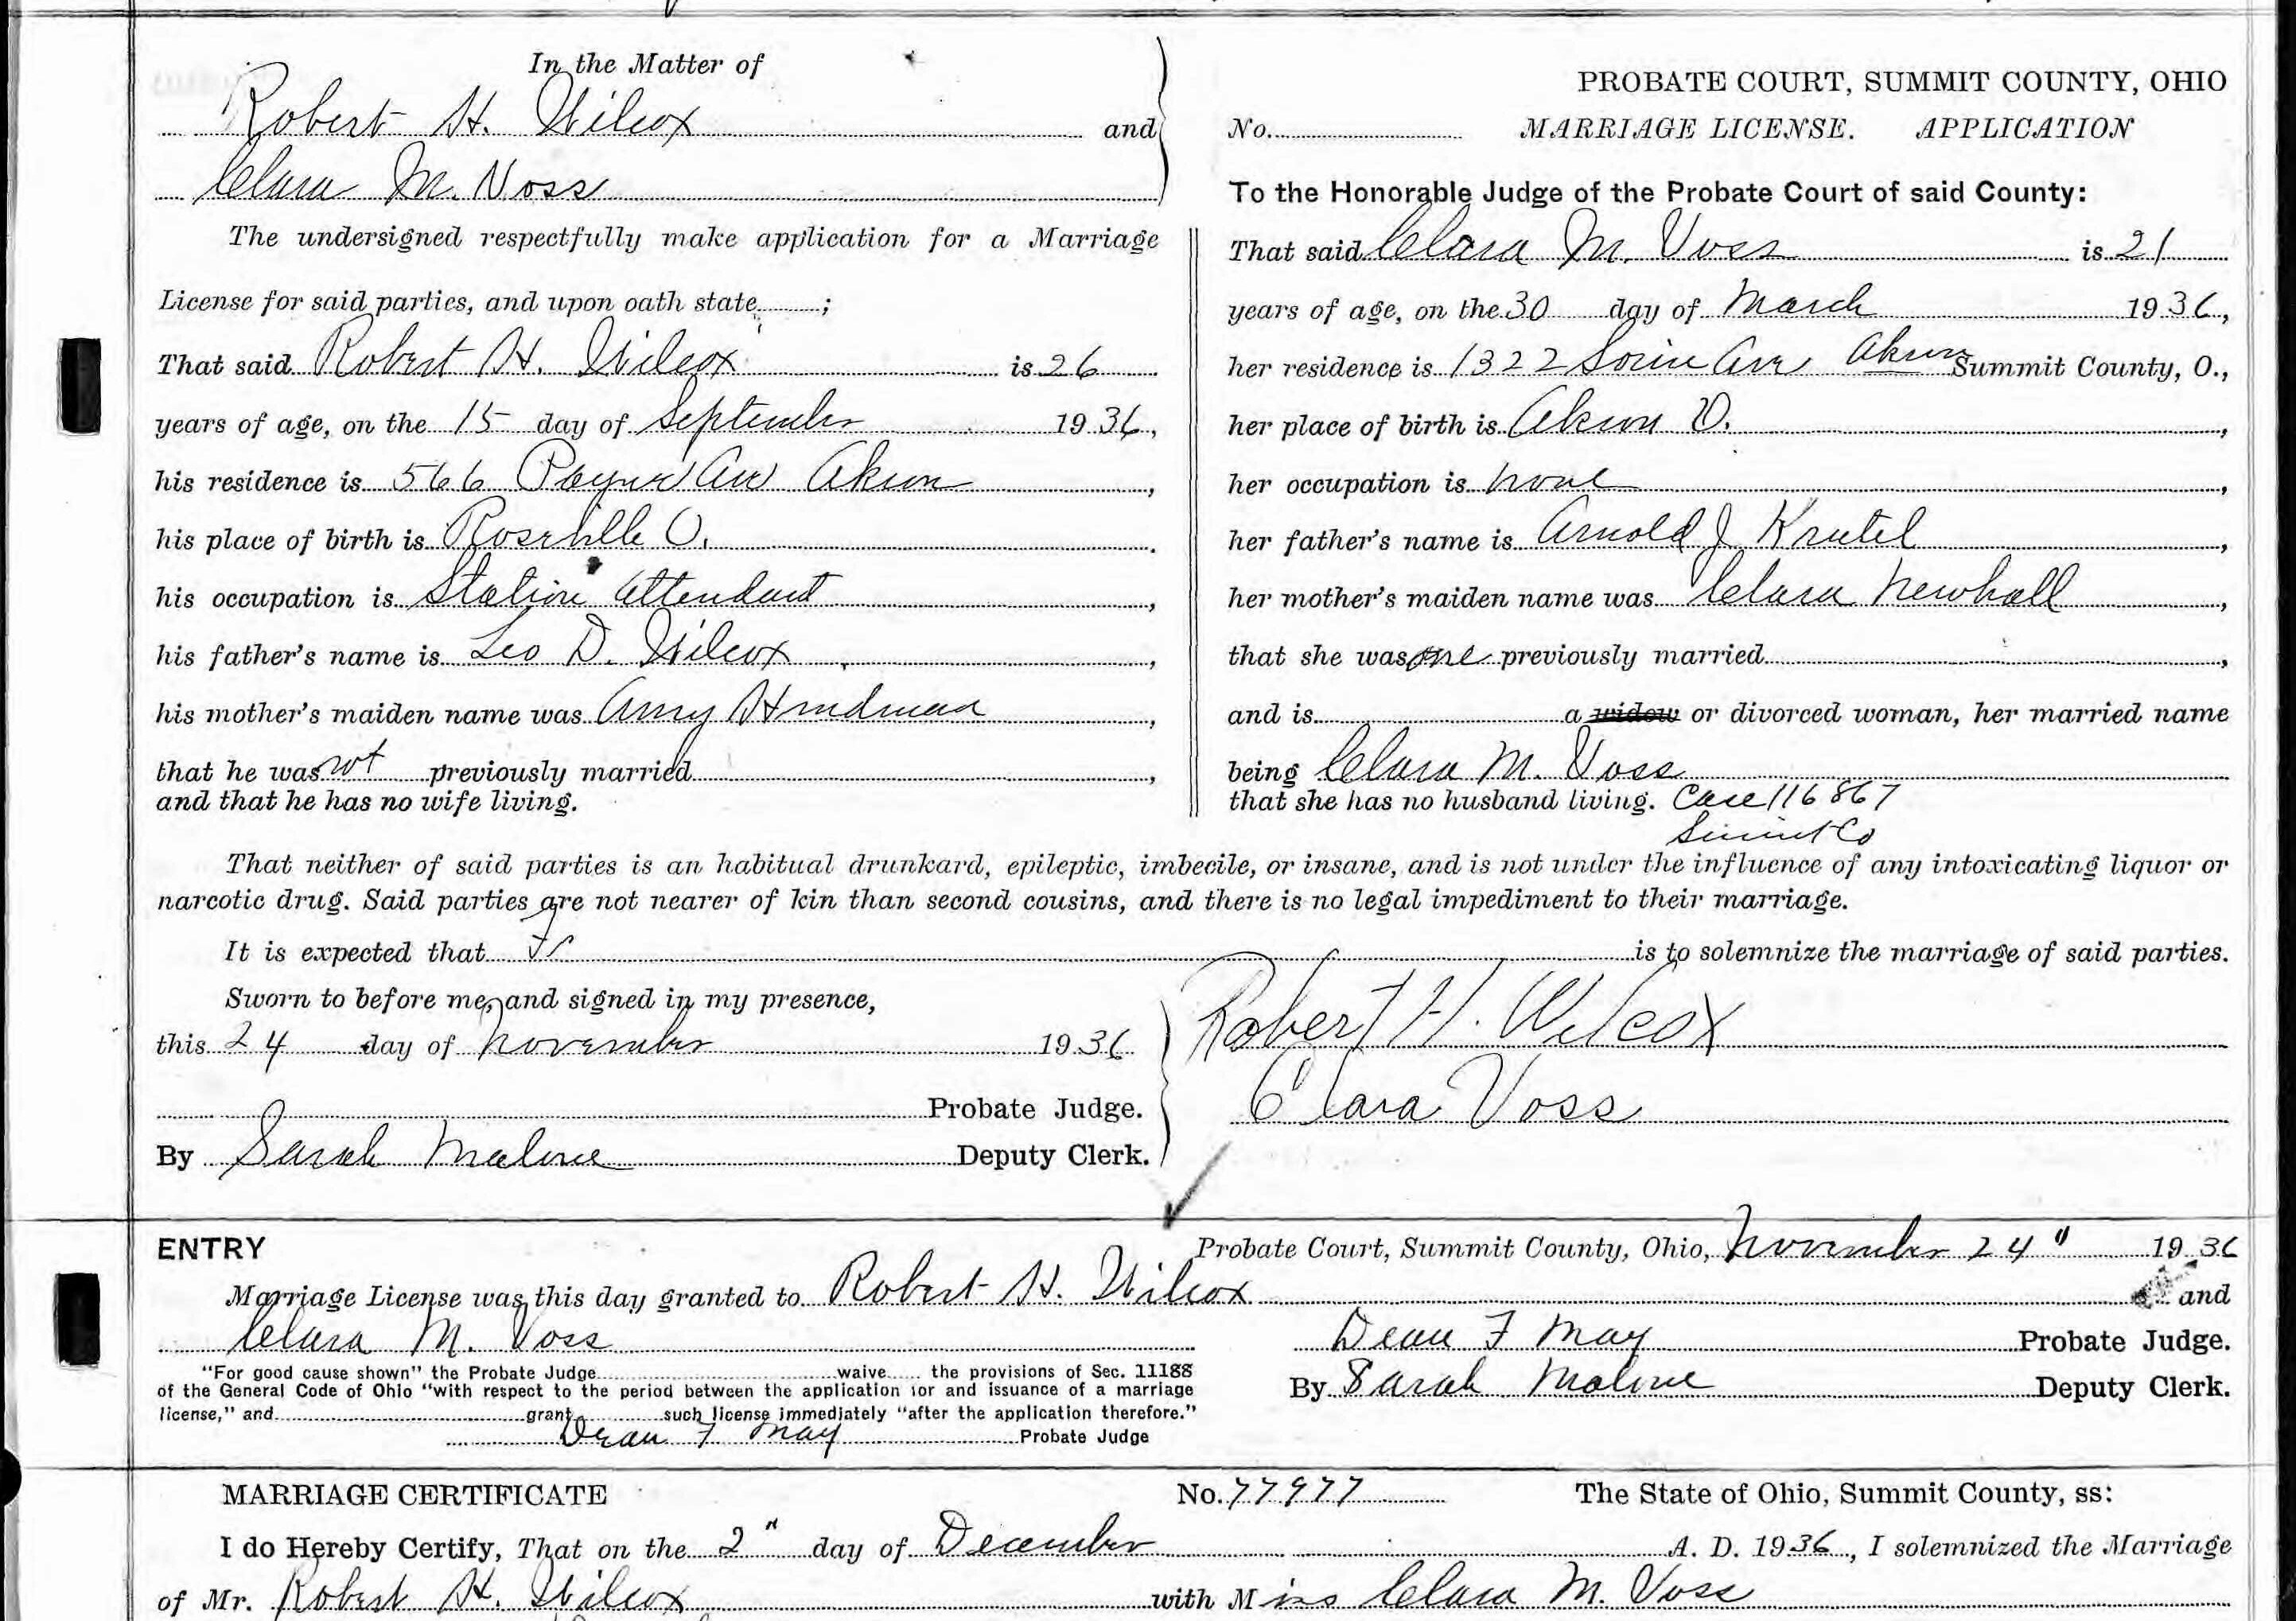 In the Matter of
Robert H. Wilcox and
Clara M. Voss
The undersigned respectfully make application for a Marriage
License for said parties, and upon oath state ;
That said Robert H. Wilcox is 26
years of age, on the 15 day of September 1936,
his residence is 566 Ave Akron,
his place of birth is Roseville O.
his occupation is Station attendant,
his father's name is Leo D. Wilcox,
his mother's maiden name was Amy,
that he was not previously married,
and that he has no wife living.
PROBATE COURT, SUMMIT COUNTY, OHIO
No. MARRIAGE LICENSE. APPLICATION
To the Honorable Judge of the Probate Court of said County:
That said Clara M. Voss is 21
years of age, on the 30 day of March 1936,
her residence is 1322 Ave Akron Summit County, O.,
her place of birth is Akron O.,
her occupation is none,
her father's name is Arnold J,
her mother's maiden name was Clara Newhall,
that she was one previously married,
and is a widow or divorced woman, her married name
being Clara M. Voss
that she has no husband living. Case 116867
Summit Co
That neither of said parties is an habitual drunkard, epileptic, imbecile, or insane, and is not under the influence of any intoxicating liquor or
narcotic drug. Said parties are not nearer of kin than second cousins, and there is no legal impediment to their marriage.
It is expected that is to solemnize the marriage of said parties.
Sworn to before me, and signed in my presence,
this 24 day of November 1936
Probate Judge.
By Sarah Malone Deputy Clerk.
Robert H. Wilcox
Clara Voss
ENTRY Probate Court, Summit County, Ohio, November 24" 1936
Marriage License was this day granted to Robert H. Wilcox and
Clara M. Voss
"For good cause shown" the Probate Judge waive the provisions of Sec. 11188
of the General Code of Ohio "with respect to the period between the application for and issuance of a marriage
license," and grant such license immediately "after the application therefore."
Dean F May Probate Judge
Dean F May Probate Judge.
By Sarah Malone Deputy Clerk.
MARRIAGE CERTIFICATE No. 77977 The State of Ohio, Summit County, ss:
I do Hereby Certify, That on the 2" day of December A. D. 1936, I solemnized the Marriage
of Mr. Robert H. Wilcox with Miss Clara M. Voss